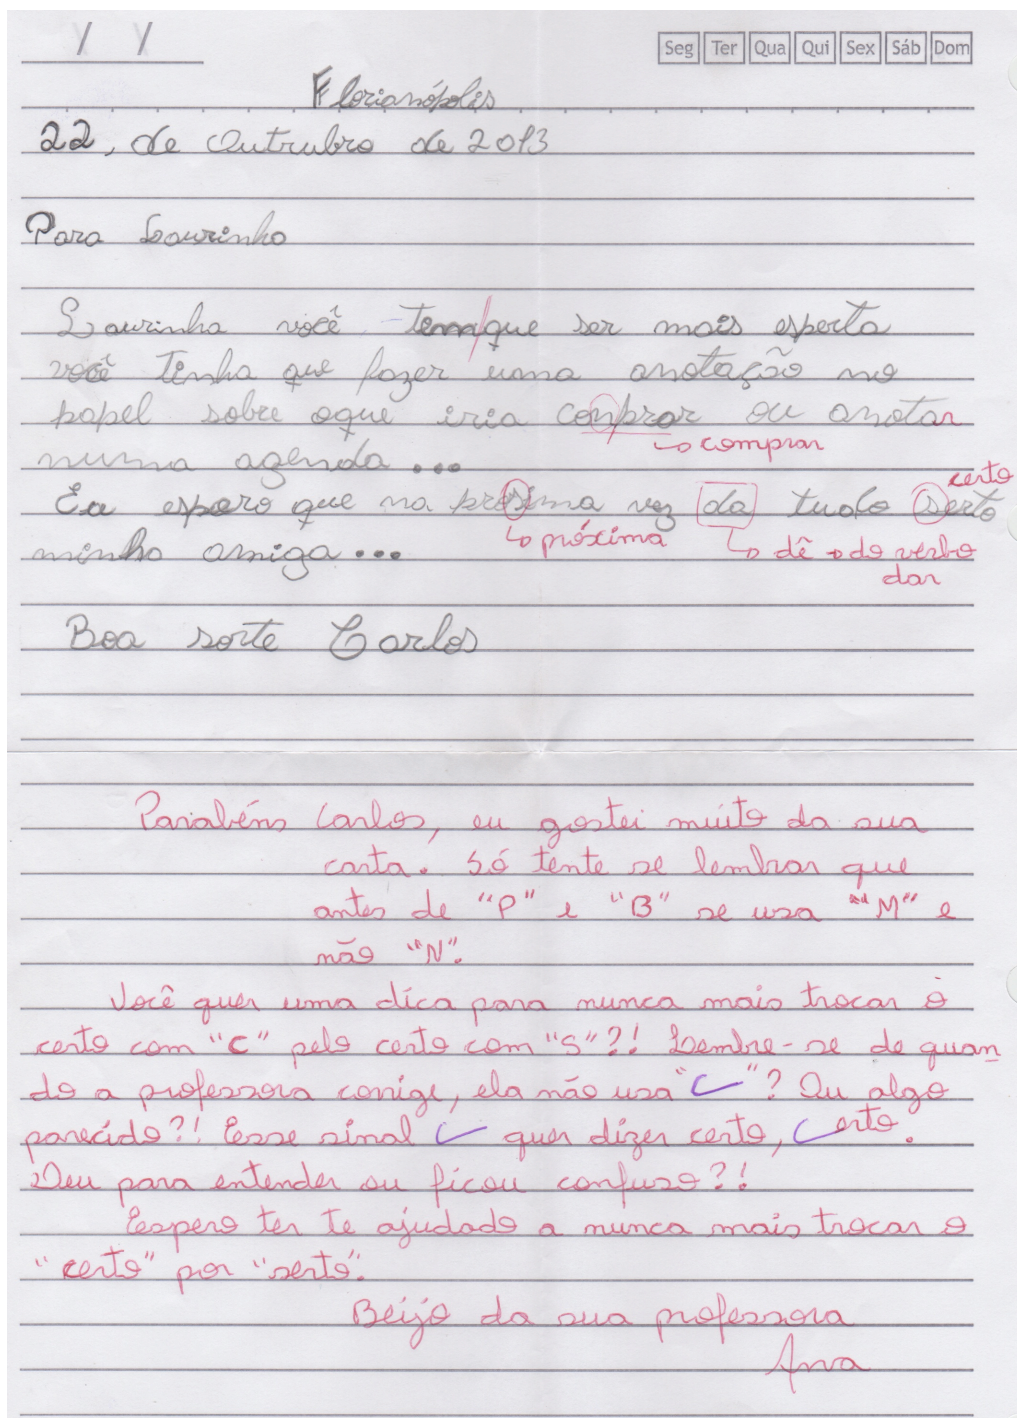 / /
Seg Ter Qua Qui Sex Sáb Dom
Florianópolis
22, de Outrubro de 2013
Para Laurinha
Laurinha você tenha que ser mais esperta
você Tinha que fazer uma anotação no
papel sobre oque iria conprar ou anotar
↳ comprar
numa agenda...
certo
Eu espero que na prosima vez da tudo serto
↳ próxima
↳ dê → do verbo
dar
minha amiga...
Boa sorte Carlos
Parabéns Carlos, eu gostei muito da sua
carta. Só tente se lembrar que
antes de "P" e "B" se usa "M" e
não "N".
Você quer uma dica para nunca mais trocar o
certo com "C" pelo certo com "S"?! Lembre-se de quan
do a professora corrige, ela não usa "C"? Ou algo
parecido?! Esse sinal C quer dizer certo, Certo.
Deu para entender ou ficou confuso?!
Espero ter te ajudado a nunca mais trocar o
"certo" por "serto".
Beijo da sua professora
Ana